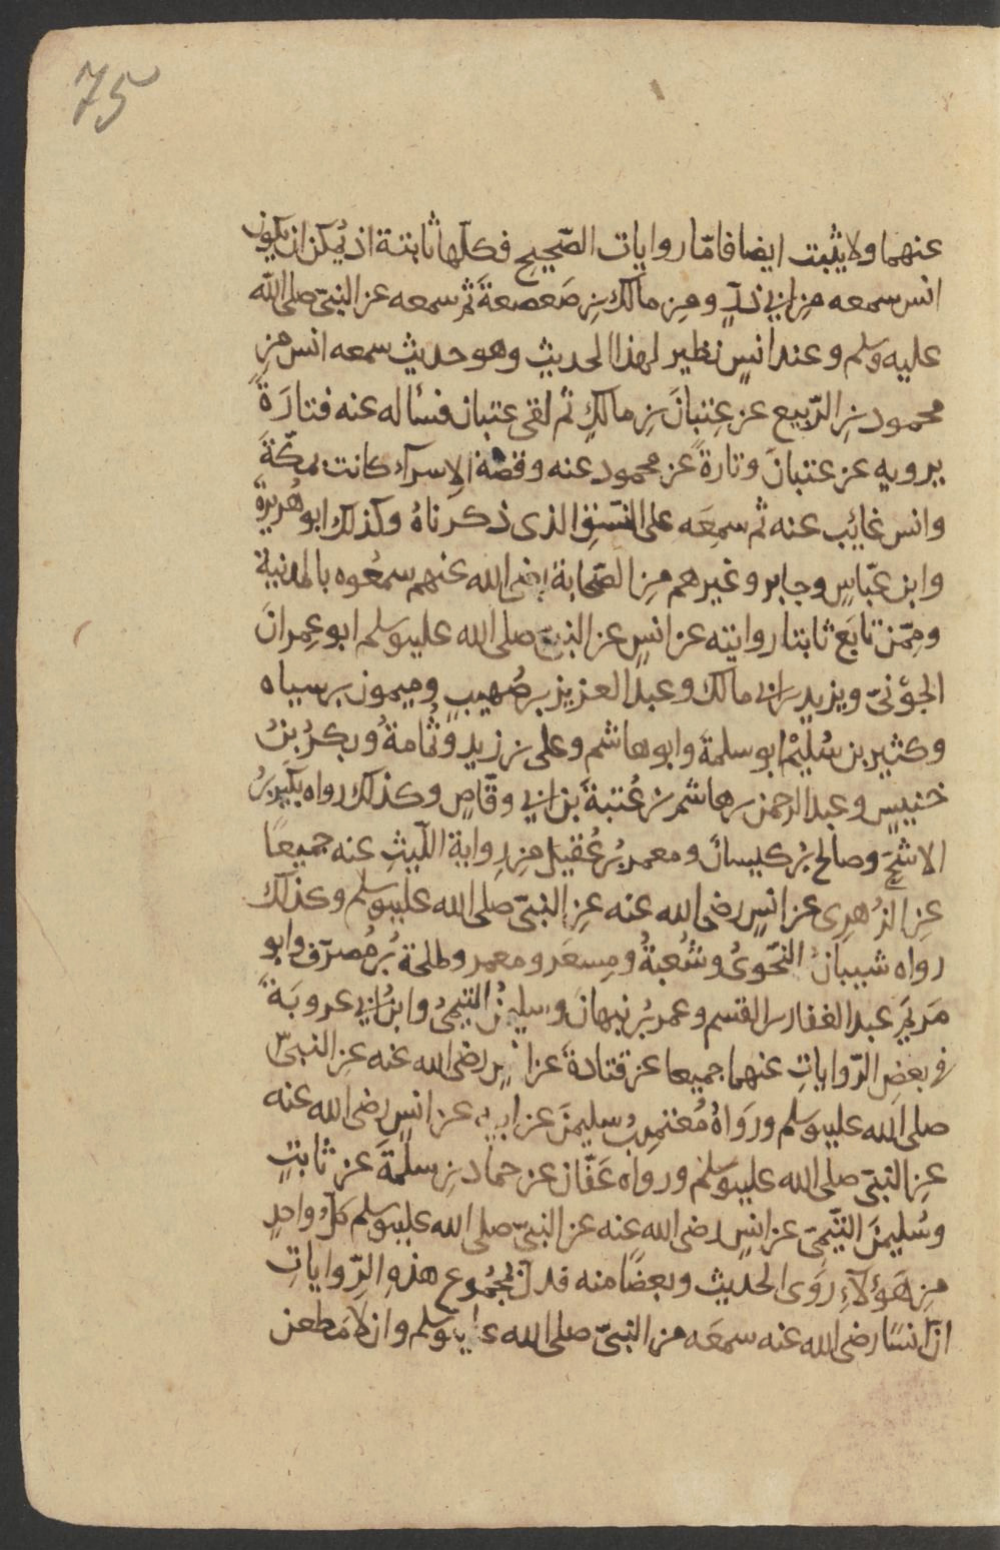 75
عنهما ولا يثبت ايضا فامّا روايات الصّحيحِ فكلّها ثابتة اذ يُمكن ان يكون
انس سمعه مِن ابي ذرٍّ ومِن مالك بنِ صَعصعةَ ثم سمعه عن النبيّ صلى الله
عليه وسلم وعند انسٍ نظير لهذا الحديثِ وهو حديث سمعه انس مِن
محمود بنِ الرّبيع عن عِتبانَ بنِ مالكٍ ثم لقى عتبان فسأله عنه فتارَةً
يرويه عن عتبانَ وتارةً عن محمود عنه وقصّة الاِسرآء كانت بمكّةَ
وانس غائب عنه ثم سمِعَه على النسَقِ الذى ذكرناهُ وكذلك ابو هُريرةَ
وابن عبّاسٍ وجابر وغيرهم مِن الصّحابة رضى الله عنهم سمعُوه بالمدنية
ومِمّن تابَع ثابتا روايته عن انسٍ عن النبيّ صلى الله عليه وسلم ابو عِمرانَ
الجوْنىّ ويزيد بن ابى مالك وعبد العزيز بن صُهيبٍ وميمون بن سياه
وكثير بن سُلَيْم ابو سلمة وابو هاشم وعلى بن زيد وثُمامةُ وبكرُ بنُ
خنيسٍ وعبد الرحمن بن هاشم بن عُتبةَ بن ابي وقّاصٍ وكذلك رواه بكير بنُ
الاشَجّ وصالح بن كيسانَ ومعمر بنُ عُقيل مِن رِواية اللّيثِ عنه جميعًا
عنِ الزُهرِى عن انسٍ رضى الله عنه عنِ النبيّ صلى الله عليه وسلم وكذلك
رواه شيبانُ النّحوىُ وشُعبةُ ومِسعَر ومعمر وطلحة بنُ مُصرّف وابو
مَريَم عبد الغفار بن القسم وعمر بنُ نبهانَ وسليمنُ التيمىُ وابنُ ابي عروبَةَ
فى بعضِ الرّواياتِ عنهما جميعا عن قتادةَ عن انسٍ رضى الله عنه عن النبىّ
صلى الله عليه وسلم ورَواهُ مُعتمِر بنُ سليمنَ عن ابيه عن انسٍ رضى الله عنه
عنِ النبيّ صلى الله عليه وسلم ورواه عَفّان عن حماد بنِ سلمَةَ عن ثابتٍ
وسُليمنَ التّيمِىّ عن انسٍ رضى الله عنه عن النبيّ صلى الله عليه وسلم كلّ واحدٍ
مِن هَؤلآءِ رَوَى الحديث وبعضًا منه فدلّ مجمُوع هذهِ الرّواياتِ
انّ انسًا رضى الله عنه سمعَه من النبيّ صلى الله عليه وسلم وان لا مَطعن